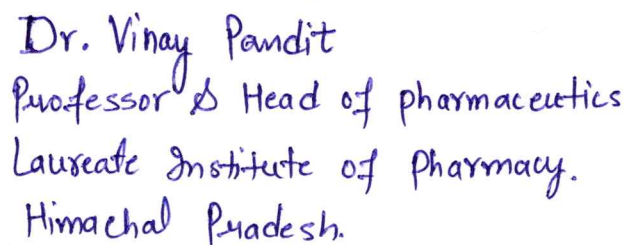 Dr. Vinay Pandit
Professor & Head of pharmaceutics
Laureate Institute of Pharmacy.
Himachal Pradesh.